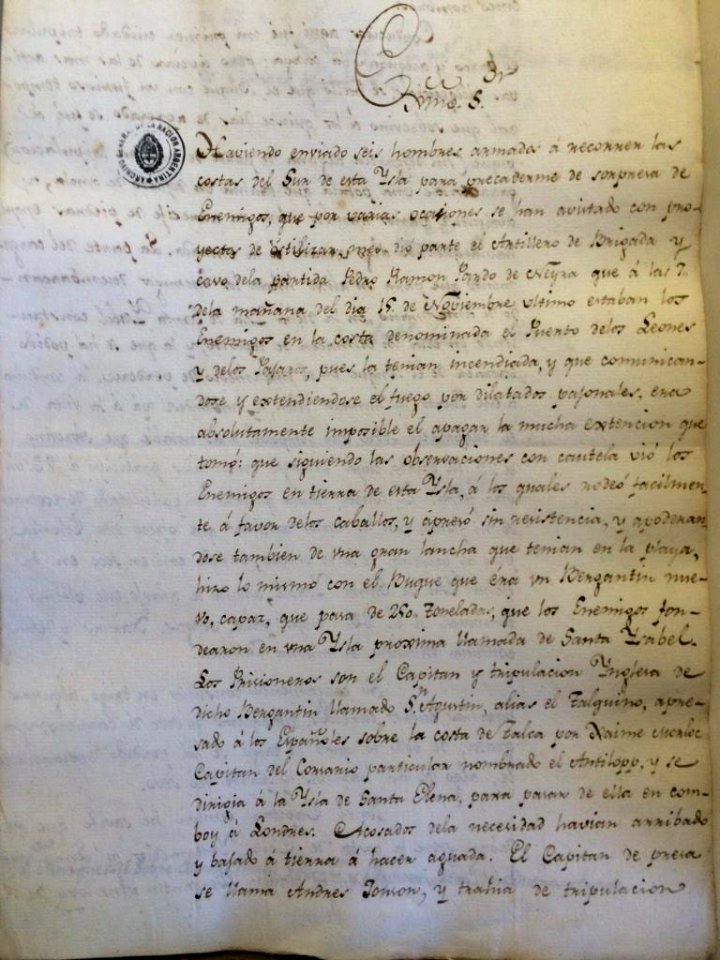 Exmo. Sr.
ARCHIVO GENERAL DE LA NACION ARGENTINA
Haviendo enviado seis hombres armados á recorrer las
costas del Sur de esta Ysla para precaberme de sorpresa de
Enemigos, que por varias ocasiones se han avistado con pro-
yectos de ostilizar, me dio parte el Artillero de Brigada y
cavo dela partida Pedro Ramon Pardo de Neyra que á las 7.
dela mañana del dia 15. de Noviembre ultimo estaban los
Enemigos en la costa denominada el Puerto delos Leones
y delos Pajaros, pues la tenian incendiada, y que comunican-
dose y extendiendose el fuego por dilatados pajonales, era
absolutamente imposible el apagar la mucha extencion que
tomó: que siguiendo las observaciones con cautela vió los
Enemigos en tierra de esta Ysla, á los quales rodeó facilmen-
te á favor delos caballos, y apresó sin resistencia, y apoderan
dose tambien de vna gran lancha que tenian en la playa,
hizo lo mismo con el Buque que era vn Bergantin nue-
vo, capaz, que pasa de 250. toneladas, que los Enemigos fon-
dearon en vna Ysla proxima llamada de Santa Ysabel.
Los Prisioneros son el Capitan y tripulacion Ynglesa de
dicho Bergantin llamado Sn. Agustin, alias el Talquino, apre-
sado á los Españoles sobre la costa de Talca por Naime Morloc
Capitan del Corsario particular nombrado el Antilopp, y se
dirigia á la Ysla de Santa Elena, para pasar de ella en com-
boy á Londres. Acosados dela necesidad havian arribado
y bajado á tierra á hacer aguada. El Capitan de presa
se llama Andres Jonson, y trahia de tripulacion